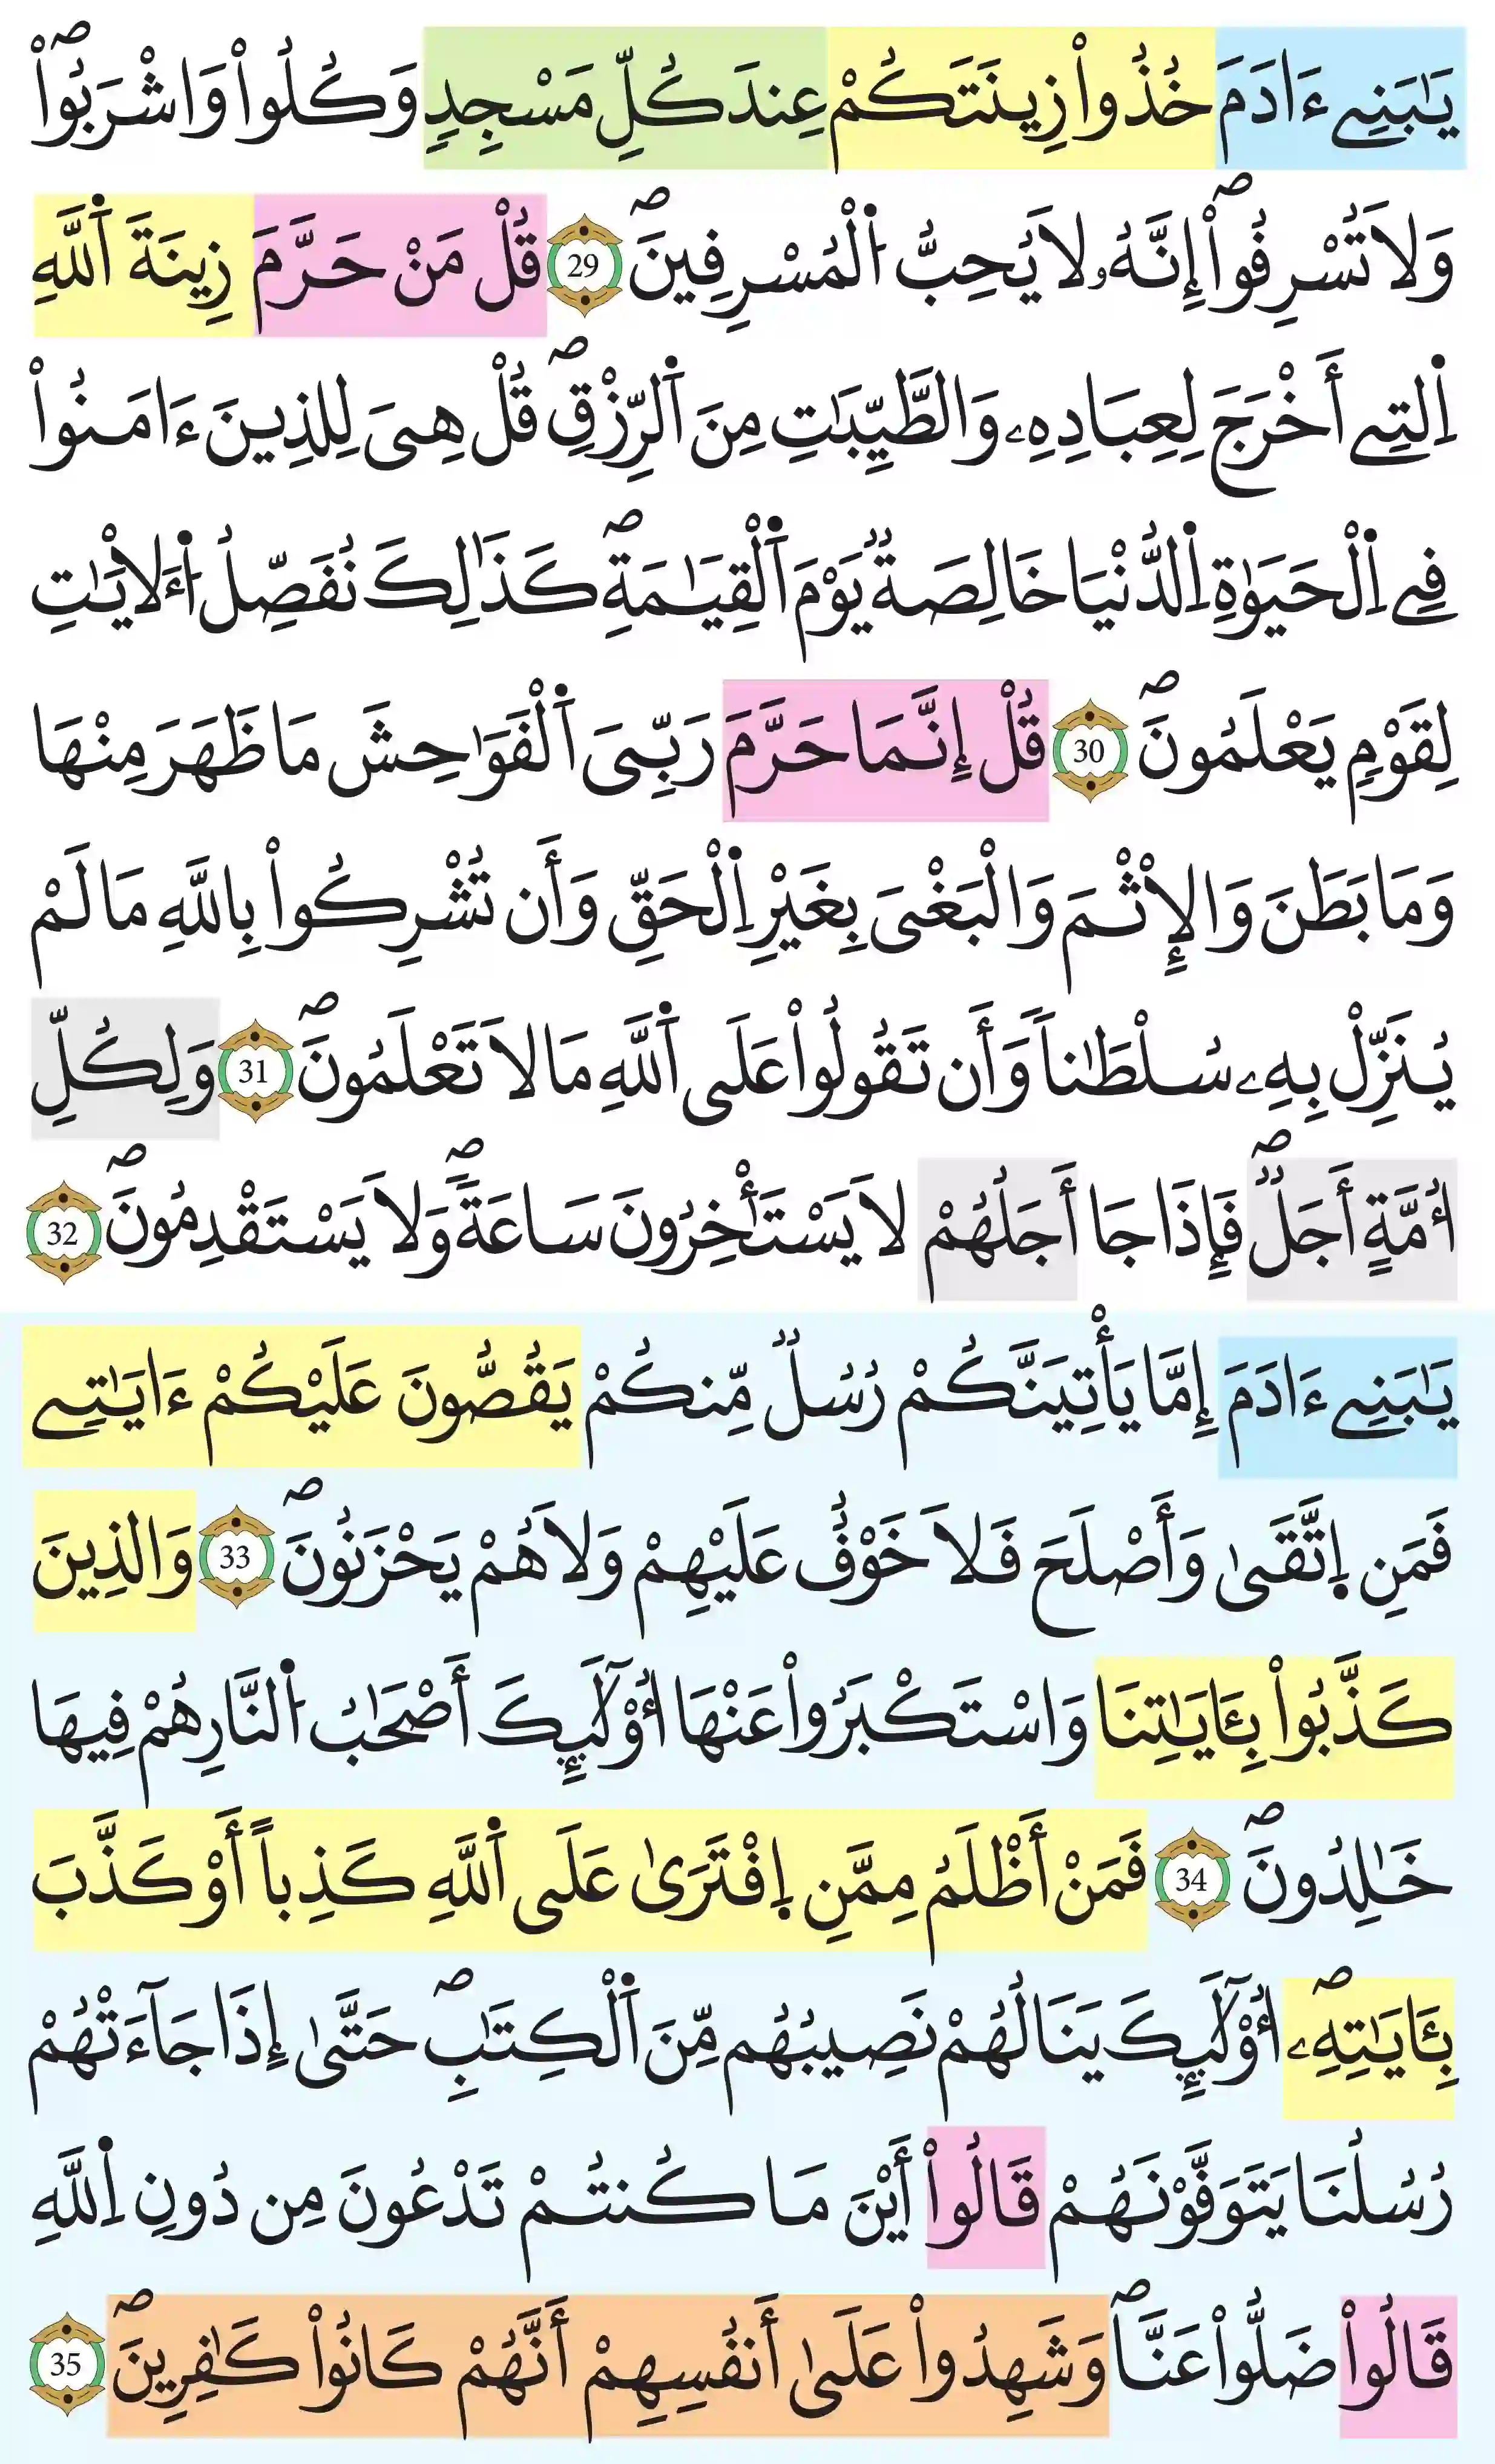 يَٰبَنِے ءَادَمَ خُذُواْ زِينَتَكُمْ عِندَ كُلِّ مَسْجِدٍ وَكُلُواْ وَاشْرَبُواْۖ
وَلَا تُسْرِفُواْۖ إِنَّهُۥ لَا يُحِبُّ اُ۬لْمُسْرِفِينَۖ 29 قُلْ مَنْ حَرَّمَ زِينَةَ اَ۬للَّهِ
اِ۬لتِےٓ أَخْرَجَ لِعِبَادِهِۦ وَالطَّيِّبَٰتِ مِنَ اَ۬لرِّزْقِۖ قُلْ هِىَ لِلذِينَ ءَامَنُواْ
فِے اِ۬لْحَيَوٰةِ اِ۬لدُّنْيَا خَالِصَةٌ يَوْمَ اَ۬لْقِيَٰمَةِۖ كَذَٰلِكَ نُفَصِّلُ اُ۬لَأيَٰتِ
لِقَوْمٍ يَعْلَمُونَۖ 30 قُلْ إِنَّمَا حَرَّمَ رَبِّىَ اَ۬لْفَوَٰحِشَ مَا ظَهَرَ مِنْهَا
وَمَا بَطَنَ وَالْإِثْمَ وَالْبَغْىَ بِغَيْرِ اِ۬لْحَقِّ وَأَن تُشْرِكُواْ بِاللَّهِ مَا لَمْ
يُنَزِّلْ بِهِۦ سُلْطَٰناً وَأَن تَقُولُواْ عَلَى اَ۬للَّهِ مَا لَا تَعْلَمُونَۖ 31 وَلِكُلِّ
أُمَّةٍ أَجَلٌۖ فَإِذَا جَا أَجَلُهُمْ لَا يَسْتَأْخِرُونَ سَاعَةً وَلَا يَسْتَقْدِمُونَۖ 32
يَٰبَنِے ءَادَمَ إِمَّا يَأْتِيَنَّكُمْ رُسُلٌ مِّنكُمْ يَقُصُّونَ عَلَيْكُمْ ءَايَٰتِے
فَمَنِ اِ۪تَّقَىٰ وَأَصْلَحَ فَلَا خَوْفٌ عَلَيْهِمْ وَلَا هُمْ يَحْزَنُونَۖ 33 وَالذِينَ
كَذَّبُواْ بِـَٔايَٰتِنَا وَاسْتَكْبَرُواْ عَنْهَا أُوْلَٰٓئِكَ أَصْحَٰبُ اُ۬لنَّارِ هُمْ فِيهَا
خَٰلِدُونَۖ 34 فَمَنْ أَظْلَمُ مِمَّنِ اِ۪فْتَرَىٰ عَلَى اَ۬للَّهِ كَذِباً أَوْ كَذَّبَ
بِـَٔايَٰتِهِۦۖ أُوْلَٰٓئِكَ يَنَالُهُمْ نَصِيبُهُم مِّنَ اَ۬لْكِتَٰبِۖ حَتَّىٰ إِذَا جَآءَتْهُمْ
رُسُلْنَا يَتَوَفَّوْنَهُمْ قَالُواْ أَيْنَ مَا كُنتُمْ تَدْعُونَ مِن دُونِ اِ۬للَّهِ
قَالُواْ ضَلُّواْ عَنَّاۖ وَشَهِدُواْ عَلَىٰ أَنفُسِهِمْ أَنَّهُمْ كَانُواْ كَٰفِرِينَۖ 35